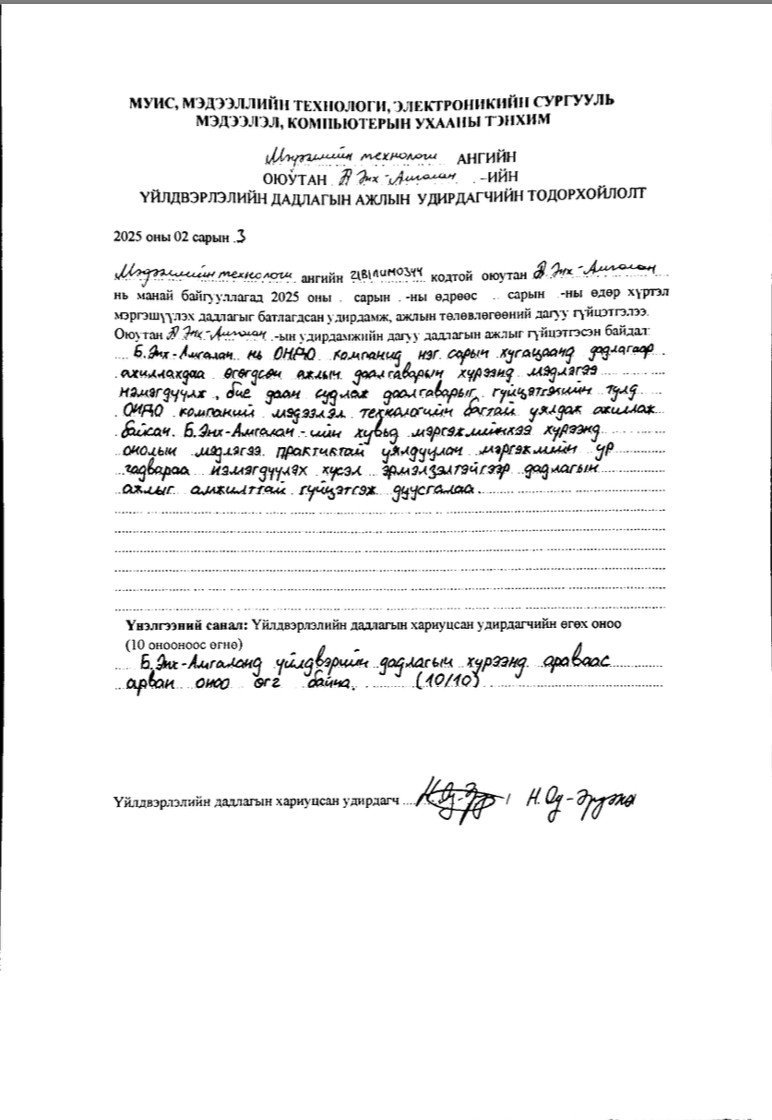 МУИС, МЭДЭЭЛЛИЙН ТЕХНОЛОГИ, ЭЛЕКТРОНИКИЙН СУРГУУЛЬ
МЭДЭЭЛЭЛ, КОМПЬЮТЕРЫН УХААНЫ ТЭНХИМ
Мэдээллийн технологи АНГИЙН
ОЮУТАН Б. Энх-Амгалан -ИЙН
ҮЙЛДВЭРЛЭЛИЙН ДАДЛАГЫН АЖЛЫН УДИРДАГЧИЙН ТОДОРХОЙЛОЛТ
2025 оны 02 сарын 3
Мэдээллийн технологи ангийн кодтой оюутан Б. Энх-Амгалан
нь манай байгууллагад 2025 оны . сарын . -ны өдрөөс .. сарын . -ны өдөр хүртэл
мэргэшүүлэх дадлагыг батлагдсан удирдамж, ажлын төлөвлөгөөний дагуу гүйцэтгэлээ.
Оюутан Б. Энх-Амгалан -ын удирдамжийн дагуу дадлагын ажлыг гүйцэтгэсэн байдал:
Б.Энх-Амгалан нь компанид нэг сарын хугацаанд дадлагаар
ажиллахдаа өгөгдсөн ажлын даалгаварын хүрээнд мэдлэгээ
нэмэгдүүлж, бие даан судлах даалгаварыг гүйцэтгэхийн тулд
компаний мэдээлэл технологийн багтай уялдаж ажиллаж
байсан. Б.Энх-Амгалан -ийн хувьд мэргэжлийнхээ хүрээнд
онолын мэдлэгээ практиктай уялдуулан мэргэжлийн ур
чадвараа нэмэгдүүлэх хүсэл эрмэлзэлтэйгээр дадлагын
ажлыг амжилттай гүйцэтгэж дуусгалаа.
Үнэлгээний санал: Үйлдвэрлэлийн дадлагын хариуцсан удирдагчийн өгөх оноо
(10 онооноос өгнө)
Б.Энх-Амгаланд үйлдвэрийн дадлагын хүрээнд араваас
арван оноо өгч байна. (10/10)
Үйлдвэрлэлийн дадлагын хариуцсан удирдагч Н.Од-Эр / Н.Од-Эрдэнэ